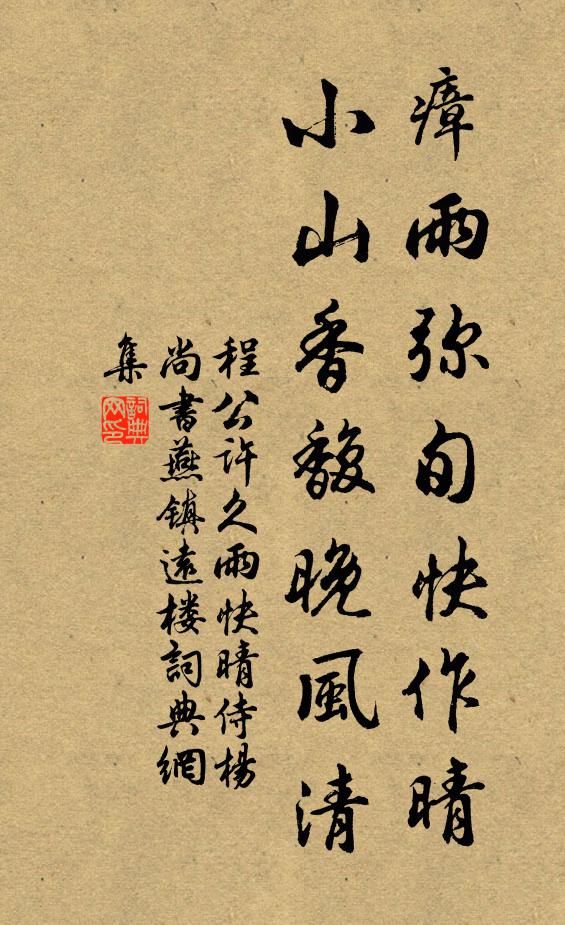 瘴雨弥旬快作晴
小山香馥晚風清
程公许久雨快晴侍楊
尚書燕镇遠楼詞典網
集
詞典网印